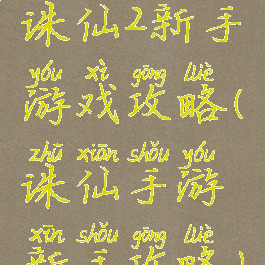 诛仙2新手
yóu xì gōng lüè
游戏攻略(
zhū xiān shǒu yóu
诛仙手游
xīn shǒu gōng lüè
新手攻略)